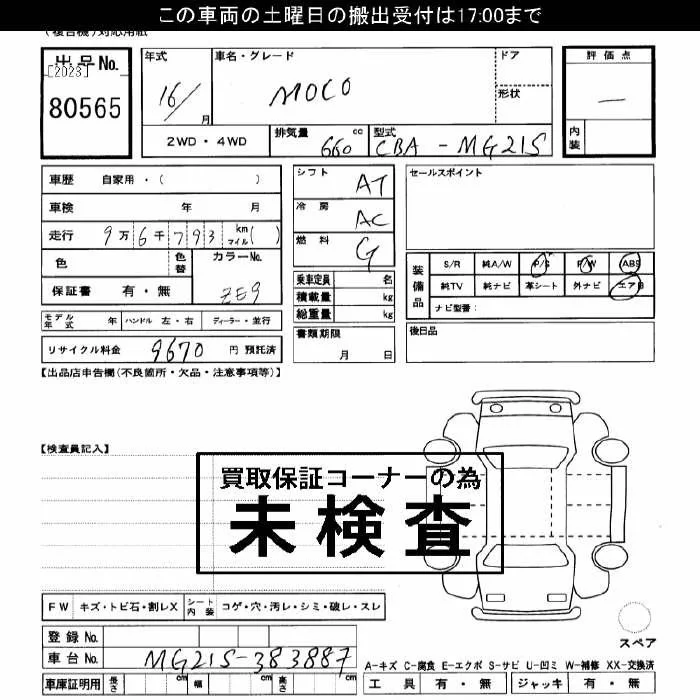 この車両の土曜日の搬出受付は17:00まで
(複合機)対応用紙
出品No. [2023] 80565
年式 16/ 月
車名・グレード MOCO
ドア
形状
評価点 —
内装
2WD・4WD
排気量 660 cc
型式 CBA-MG21S
車歴 自家用・( )
車検 年 月
走行 9万6千793 km マイル( )
色 色替 カラーNo. ZE9
保証書 有・無
モデル年式 年 ハンドル 左・右 ディーラー・並行
リサイクル料金 9670 円 預託済
シフト AT
冷房 AC
燃料 G
乗車定員 名
積載量 kg
総重量 kg
書類期限 月 日
セールスポイント
装備品 S/R 純A/W P/S P/W ABS
純TV 純ナビ 革シート 外ナビ エアB
ナビ型番:
後日品
【出品店申告欄(不良箇所・欠品・注意事項等)】
【検査員記入】
買取保証コーナーの為
未検査
FW キズ・トビ石・割レX シート内装 コゲ・穴・汚レ・シミ・破レ・スレ
登録No.
車台No. MG21S-383887
車庫証明用 長さ cm 幅 cm 高さ cm
スペア
A-キズ C-腐食 E-エクボ S-サビ U-凹ミ W-補修 XX-交換済
工具 有・無 ジャッキ 有・無